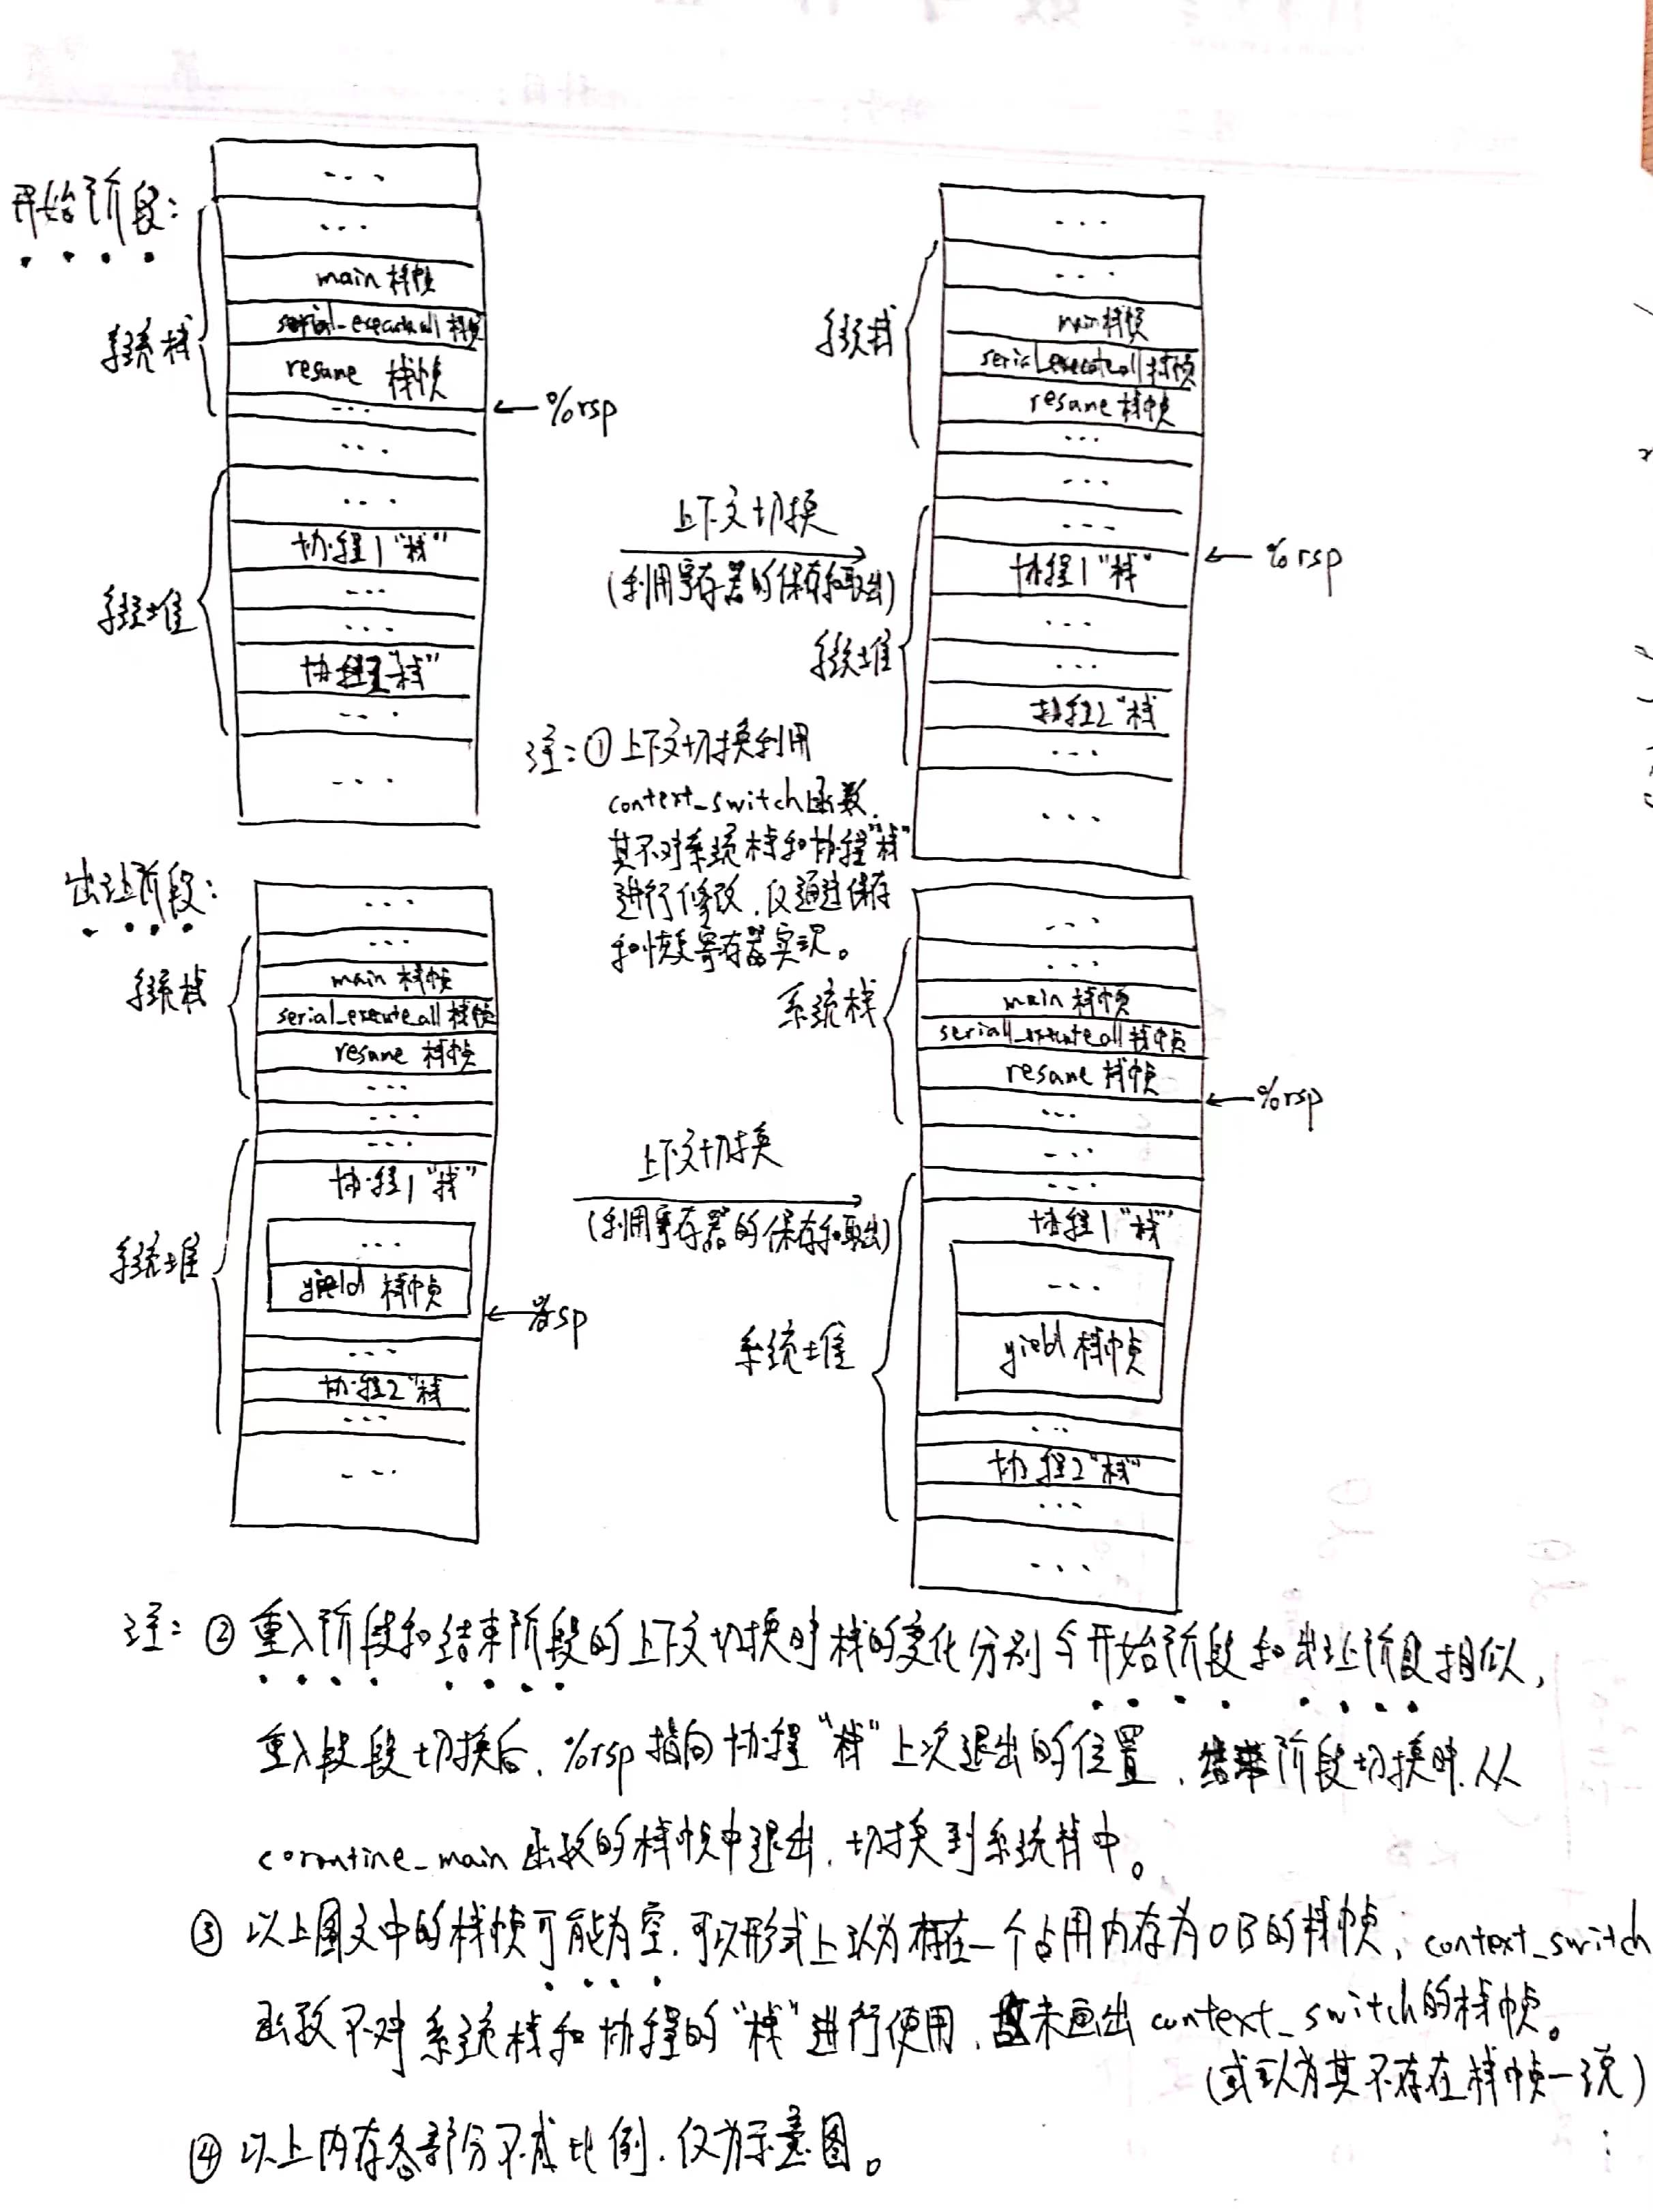 开始阶段:
系统栈
...
...
main 栈帧
serial_execute_all 栈帧
resume 栈帧
...
← %rsp
...
系统堆
...
协程1"栈"
...
...
协程2"栈"
...
...
上下文切换
(利用寄存器的保存和取出)
系统栈
...
...
main 栈帧
serial_execute_all 栈帧
resume 栈帧
...
...
系统堆
...
← %rsp
协程1"栈"
...
...
协程2"栈"
...
...
注:①上下文切换利用
context_switch函数,
其不对系统栈和协程"栈"
进行修改,仅通过保存
和恢复寄存器实现。
出让阶段:
系统栈
...
...
main 栈帧
serial_execute_all 栈帧
resume 栈帧
...
...
系统堆
...
协程1"栈"
...
yield 栈帧
← %rsp
...
协程2"栈"
...
...
上下文切换
(利用寄存器的保存和取出)
系统栈
...
...
main 栈帧
serial_execute_all 栈帧
resume 栈帧
← %rsp
...
...
系统堆
...
协程1"栈"
...
yield 栈帧
...
协程2"栈"
...
...
注:②重入阶段和结束阶段的上下文切换时栈的变化分别与开始阶段和出让阶段相似,
重入段段切换后,%rsp指向协程"栈"上次退出的位置,结束阶段切换时,从
coroutine_main函数的栈帧中退出,切换到系统栈中。
③以上图文中的栈帧可能为空,可以形式上认为存在一个占用内存为0B的栈帧,context_switch
函数不对系统栈和协程的"栈"进行使用,故未画出context_switch的栈帧。
(或认为其不存在栈帧一说)
④以上内存各部分不成比例,仅为示意图。